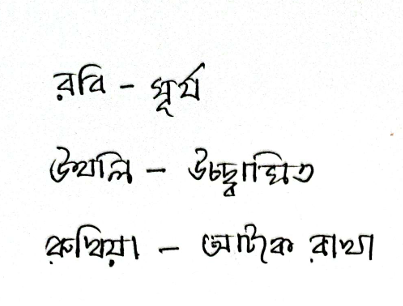 রবি - সূর্য
উথলি - উচ্ছ্বাসিত
রুধিয়া - আটকে রাখা